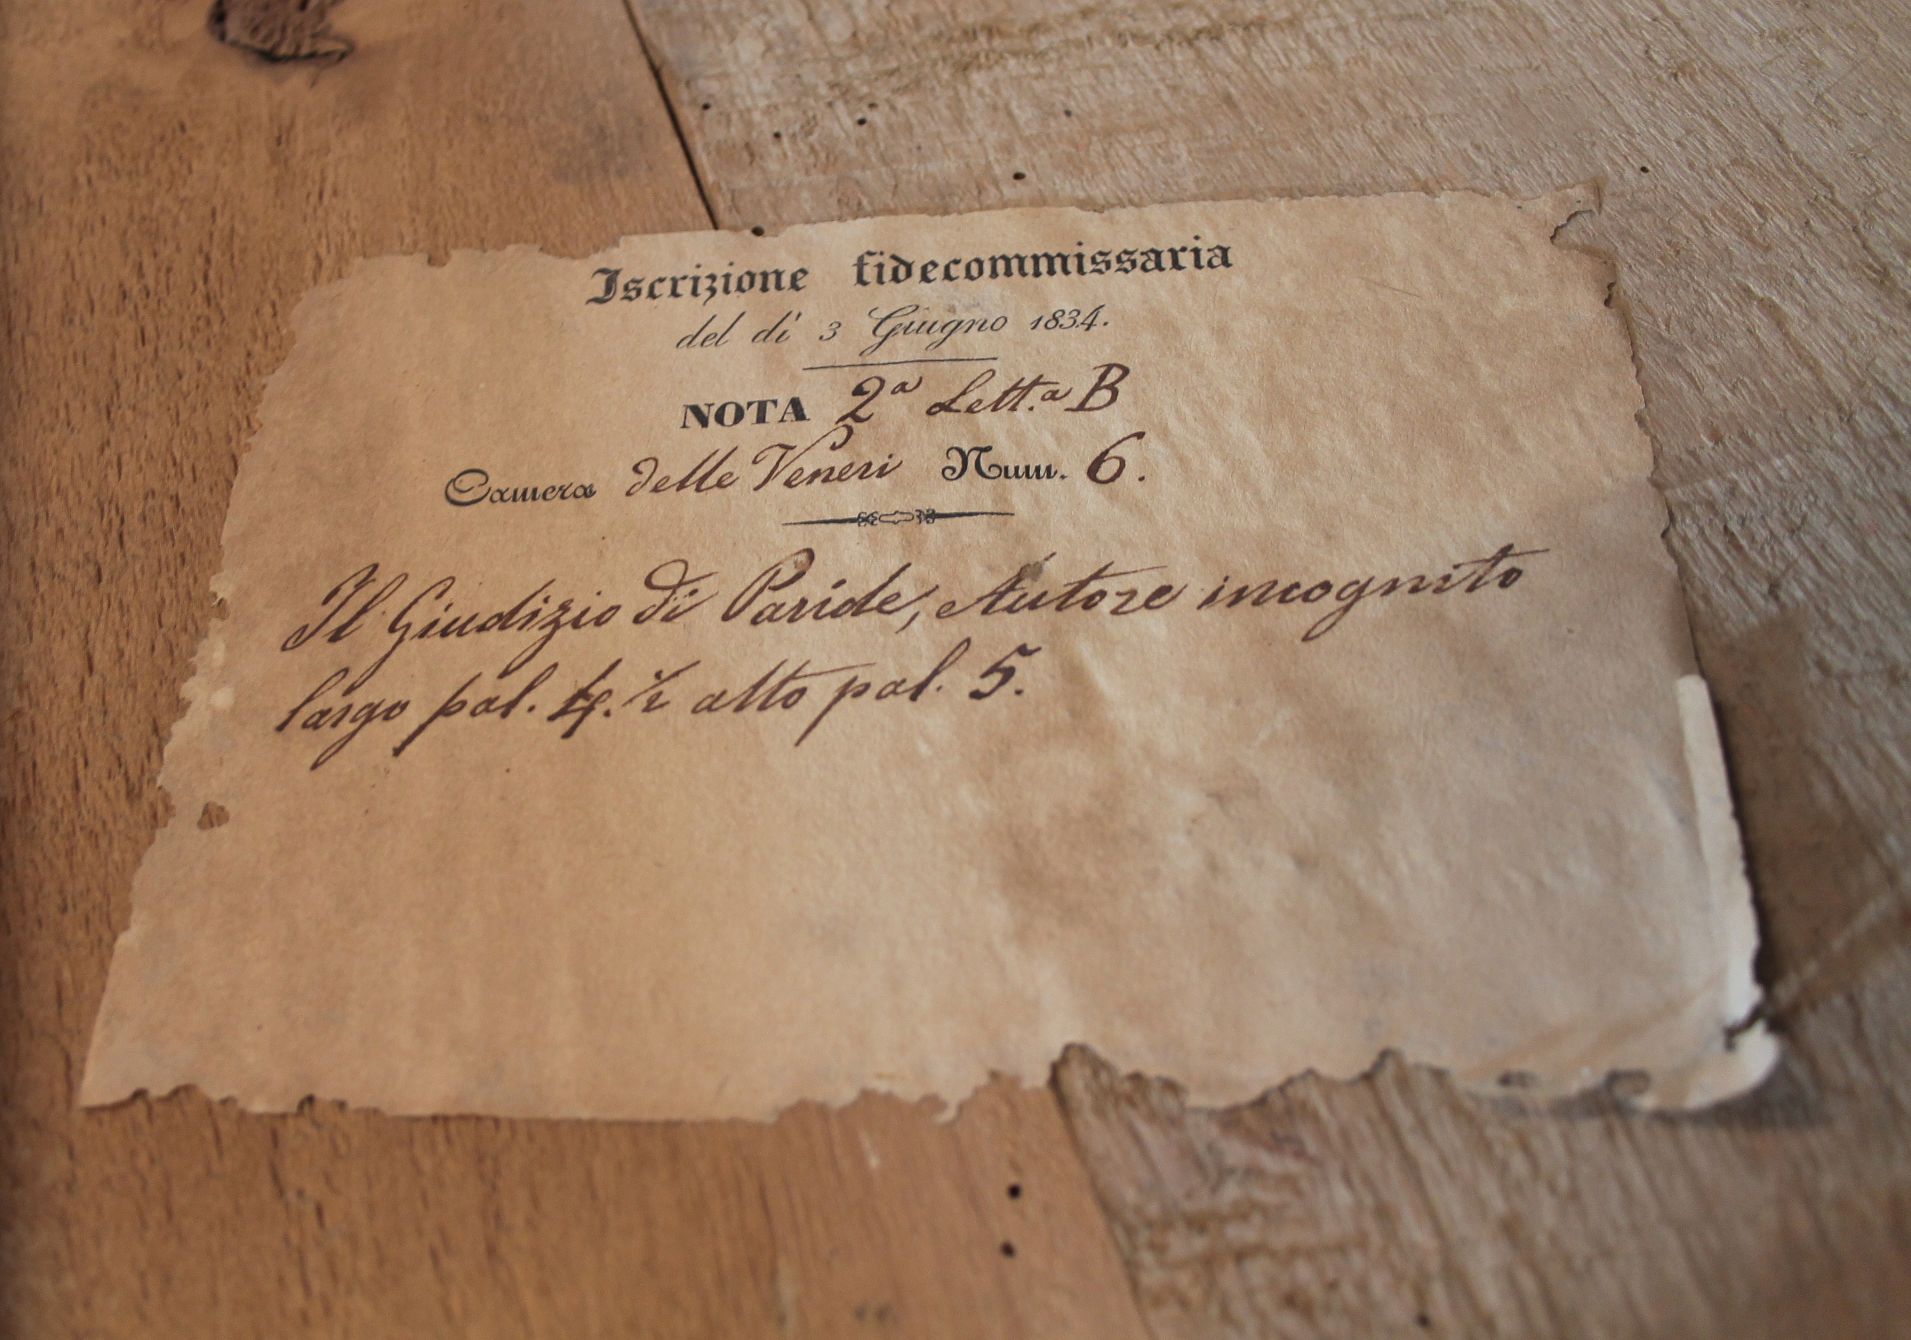 Iscrizione fidecommissaria
del dì 3 Giugno 1834.
NOTA 2ª Lett.ª B
Camera delle Veneri Num. 6.
Il Giudizio di Paride, Autore incognito
largo pal. 4. ½ alto pal. 5.